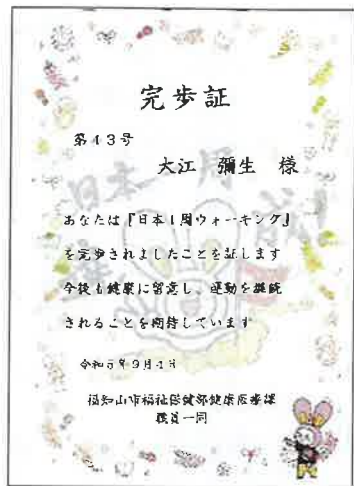 完歩証
第43号
大江 彌生 様
あなたは『日本1周ウォーキング』
を完歩されましたことを証します
今後も健康に留意し、運動を継続
されることを期待しています
令和5年9月4日
福知山市福祉保健部健康医療課
職員一同